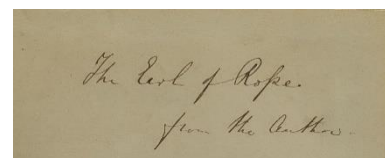 The Earl of Roſse.
from the Author.